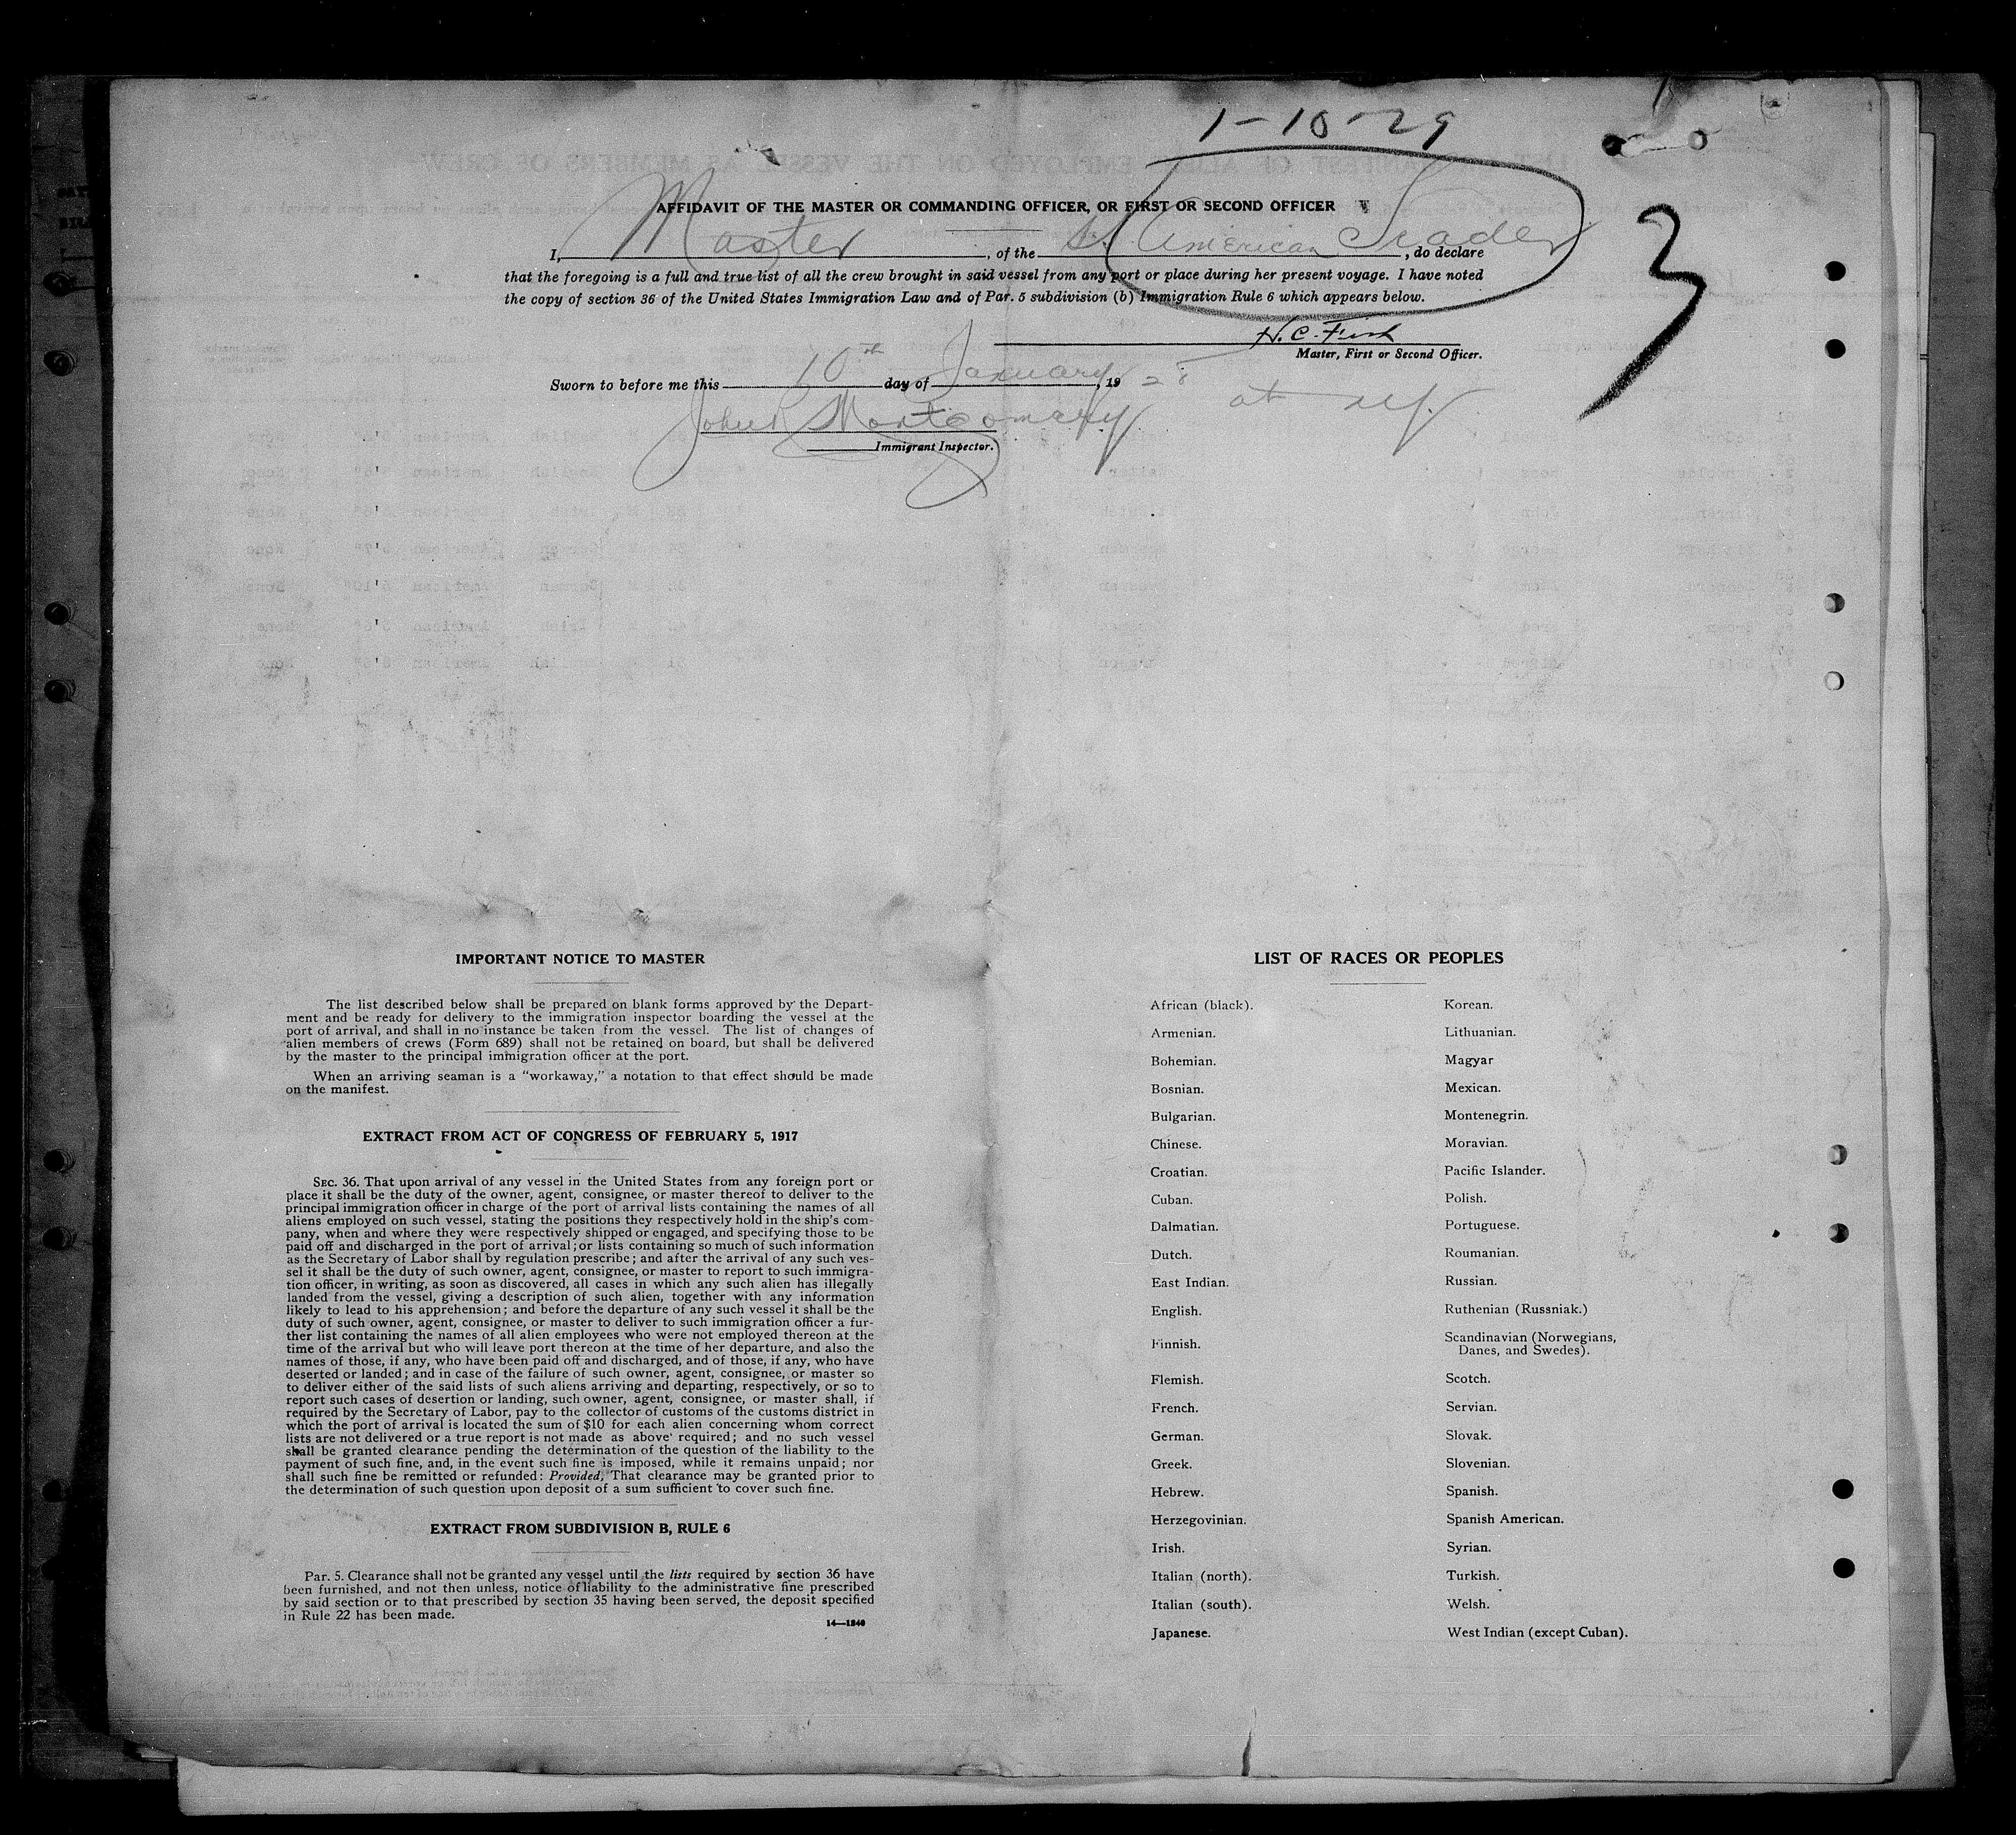 1-10-29
3
AFFIDAVIT OF THE MASTER OR COMMANDING OFFICER, OR FIRST OR SECOND OFFICER
I, Master, of the American Trader, do declare
that the foregoing is a full and true list of all the crew brought in said vessel from any port or place during her present voyage. I have noted
the copy of section 36 of the United States Immigration Law and of Par. 5 subdivision (b) Immigration Rule 6 which appears below.
H. C. Fish
Master, First or Second Officer.
Sworn to before me this 10th day of January, 19 28
at NY.
John Montgomery
Immigrant Inspector.
IMPORTANT NOTICE TO MASTER
The list described below shall be prepared on blank forms approved by the Depart-
ment and be ready for delivery to the immigration inspector boarding the vessel at the
port of arrival, and shall in no instance be taken from the vessel. The list of changes of
alien members of crews (Form 689) shall not be retained on board, but shall be delivered
by the master to the principal immigration officer at the port.
When an arriving seaman is a "workaway," a notation to that effect should be made
on the manifest.
EXTRACT FROM ACT OF CONGRESS OF FEBRUARY 5, 1917
SEC. 36. That upon arrival of any vessel in the United States from any foreign port or
place it shall be the duty of the owner, agent, consignee, or master thereof to deliver to the
principal immigration officer in charge of the port of arrival lists containing the names of all
aliens employed on such vessel, stating the positions they respectively hold in the ship's com-
pany, when and where they were respectively shipped or engaged, and specifying those to be
paid off and discharged in the port of arrival; or lists containing so much of such information
as the Secretary of Labor shall by regulation prescribe; and after the arrival of any such ves-
sel it shall be the duty of such owner, agent, consignee, or master to report to such immigra-
tion officer, in writing, as soon as discovered, all cases in which any such alien has illegally
landed from the vessel, giving a description of such alien, together with any information
likely to lead to his apprehension; and before the departure of any such vessel it shall be the
duty of such owner, agent, consignee, or master to deliver to such immigration officer a fur-
ther list containing the names of all alien employees who were not employed thereon at the
time of the arrival but who will leave port thereon at the time of her departure, and also the
names of those, if any, who have been paid off and discharged, and of those, if any, who have
deserted or landed; and in case of the failure of such owner, agent, consignee, or master so
to deliver either of the said lists of such aliens arriving and departing, respectively, or so to
report such cases of desertion or landing, such owner, agent, consignee, or master shall, if
required by the Secretary of Labor, pay to the collector of customs of the customs district in
which the port of arrival is located the sum of $10 for each alien concerning whom correct
lists are not delivered or a true report is not made as above required; and no such vessel
shall be granted clearance pending the determination of the question of the liability to the
payment of such fine, and, in the event such fine is imposed, while it remains unpaid; nor
shall such fine be remitted or refunded: Provided, That clearance may be granted prior to
the determination of such question upon deposit of a sum sufficient to cover such fine.
EXTRACT FROM SUBDIVISION B, RULE 6
Par. 5. Clearance shall not be granted any vessel until the lists required by section 36 have
been furnished, and not then unless, notice of liability to the administrative fine prescribed
by said section or to that prescribed by section 35 having been served, the deposit specified
in Rule 22 has been made.
14—1240
LIST OF RACES OR PEOPLES
African (black).
Armenian.
Bohemian.
Bosnian.
Bulgarian.
Chinese.
Croatian.
Cuban.
Dalmatian.
Dutch.
East Indian.
English.
Finnish.
Flemish.
French.
German.
Greek.
Hebrew.
Herzegovinian.
Irish.
Italian (north).
Italian (south).
Japanese.
Korean.
Lithuanian.
Magyar
Mexican.
Montenegrin.
Moravian.
Pacific Islander.
Polish.
Portuguese.
Roumanian.
Russian.
Ruthenian (Russniak.)
Scandinavian (Norwegians,
Danes, and Swedes).
Scotch.
Servian.
Slovak.
Slovenian.
Spanish.
Spanish American.
Syrian.
Turkish.
Welsh.
West Indian (except Cuban).